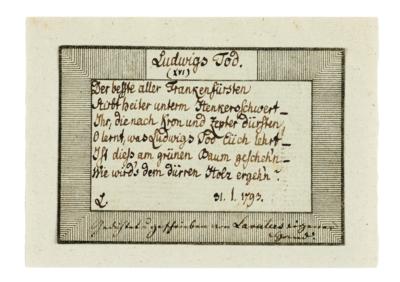 Ludwigs Tod.
(XVI)
Der beßte aller Frankenfürsten
Stirbt heiter unterm Henkersschwert_
Ihr, die nach Kron und Zepter dürsten,
O lernt, was Ludwigs Tod Euch lehrt_
Ist dieß am grünen Baum gescheh'n_
Wie wird's dem dürren Holz ergehn?
L 31. I. 1793.
Gedichtet u geschrieben von Lavaters eigener
Hand.